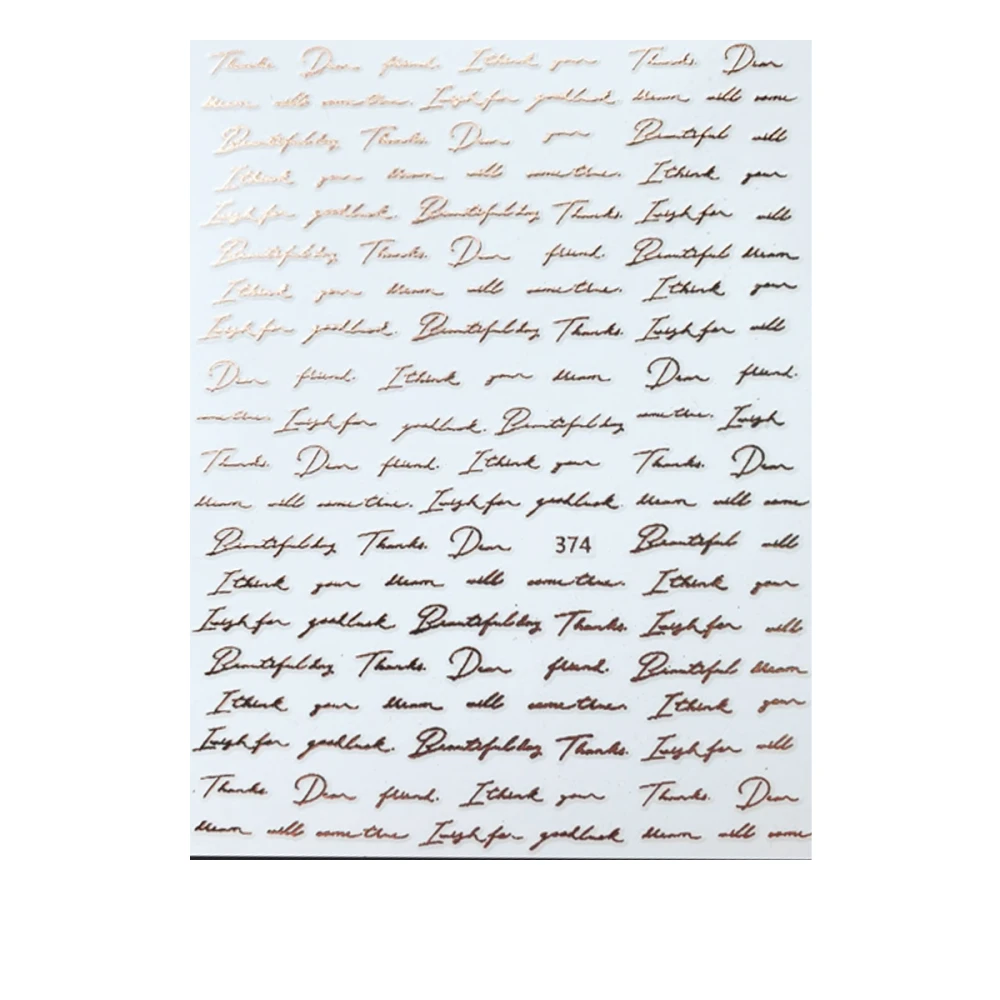 Thanks. Dear friend. I think your Thanks. Dear
dream will come true. I wish for good luck. dream will come
Beautiful day Thanks. Dear your Beautiful will
I think your dream will come true. I think your
I wish for good luck. Beautiful day Thanks. I wish for will
Beautiful day Thanks. Dear friend. Beautiful dream
I think your dream will come true. I think your
I wish for good luck. Beautiful day Thanks. I wish for will
Dear friend. I think your dream Dear friend.
come true. I wish for good luck. Beautiful day come true. I wish
Thanks. Dear friend. I think your Thanks. Dear
dream will come true. I wish for good luck. dream will come
Beautiful day Thanks. Dear 374 Beautiful will
I think your dream will come true. I think your
I wish for good luck Beautiful day Thanks. I wish for will
Beautiful day Thanks. Dear friend. Beautiful dream
I think your dream will come true. I think your
I wish for good luck. Beautiful day Thanks. I wish for will
Thanks Dear friend. I think your Thanks. Dear
dream will come true I wish for good luck dream will come